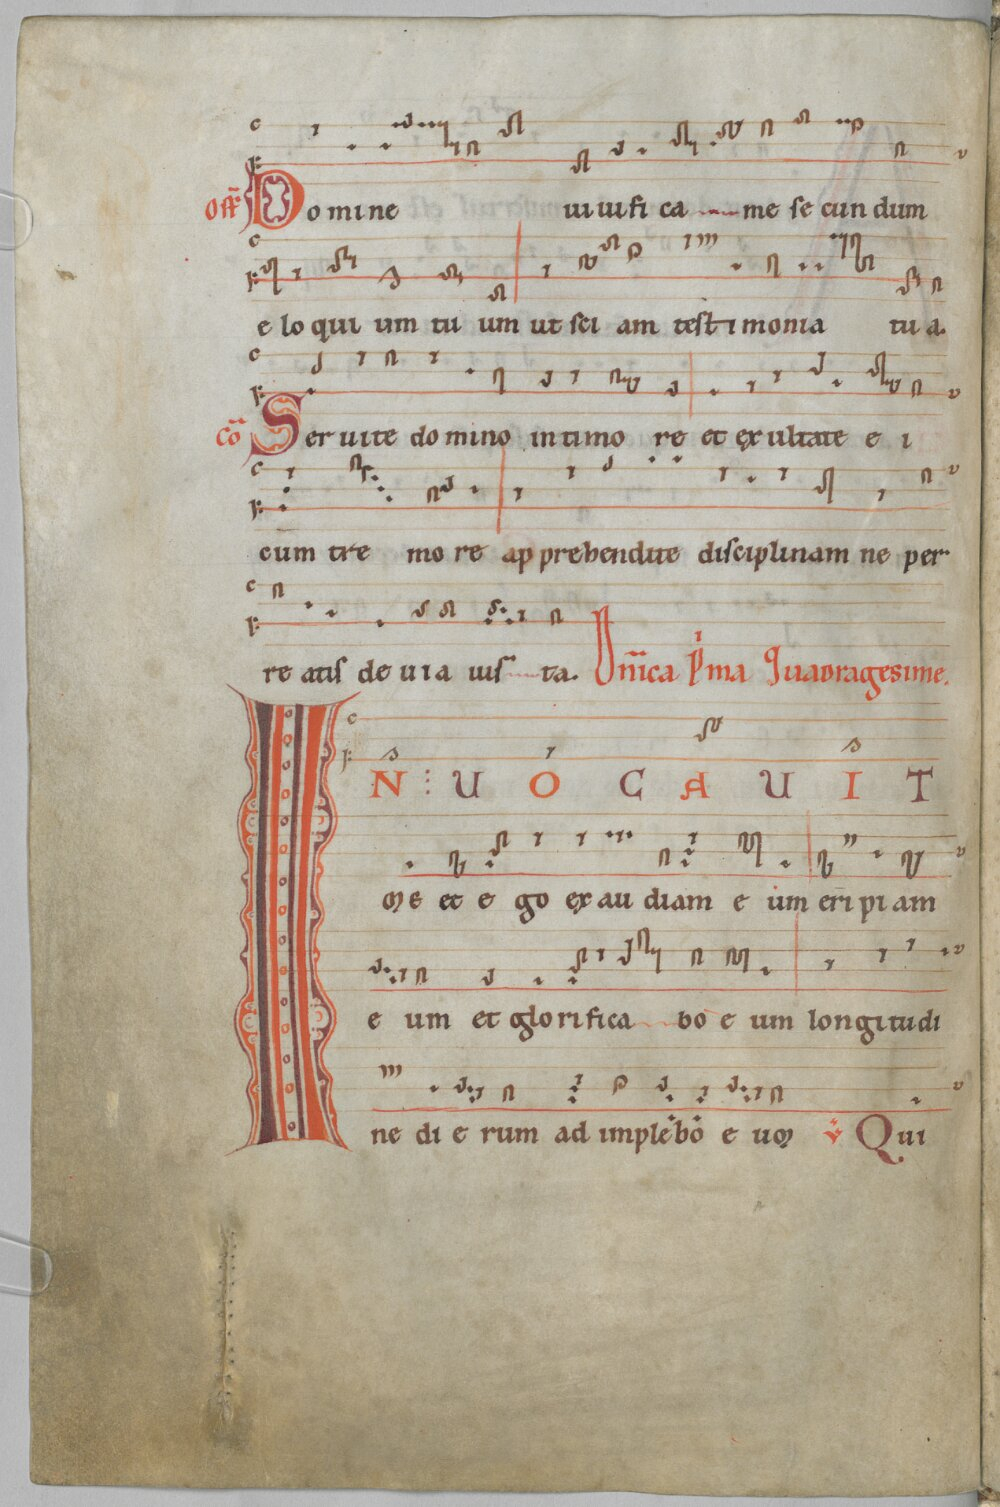 Off̄ Domine uiuifi ca me se cun dum
e lo qui um tu um ut sci am testimonia tu a.
Cō Seruite domino in timo re et exultate e i
cum tre mo re ap prehendite disciplinam ne per
re atis de uia uis ta. Dn̄ica Pͥma Quadragesime.
IN UOCAUIT
me et e go ex au diam e um eri pi am
e um et glorifica bo e um longitudi
ne di e rum ad imple bo e um ℣ Qui